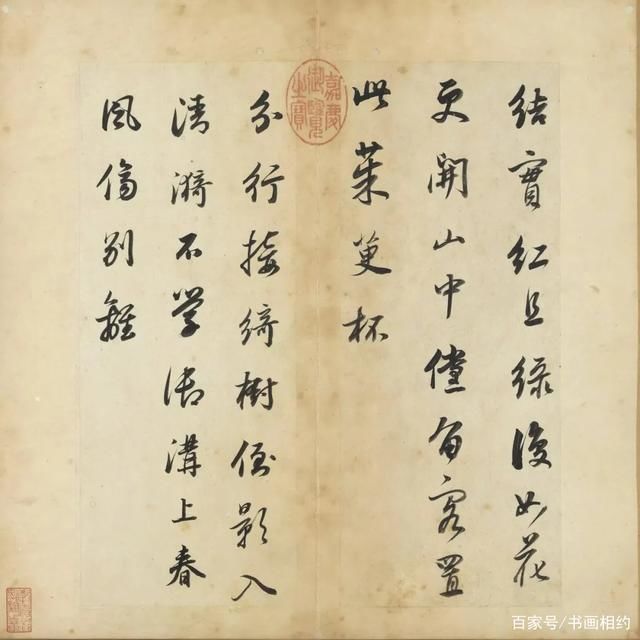 結實紅且綠復如花
更開山中儻留客置
此茱萸杯
分行接綺樹倒影入
清漪不学御溝上春
風傷別離
嘉慶御覽之寶
百家号/书画相约